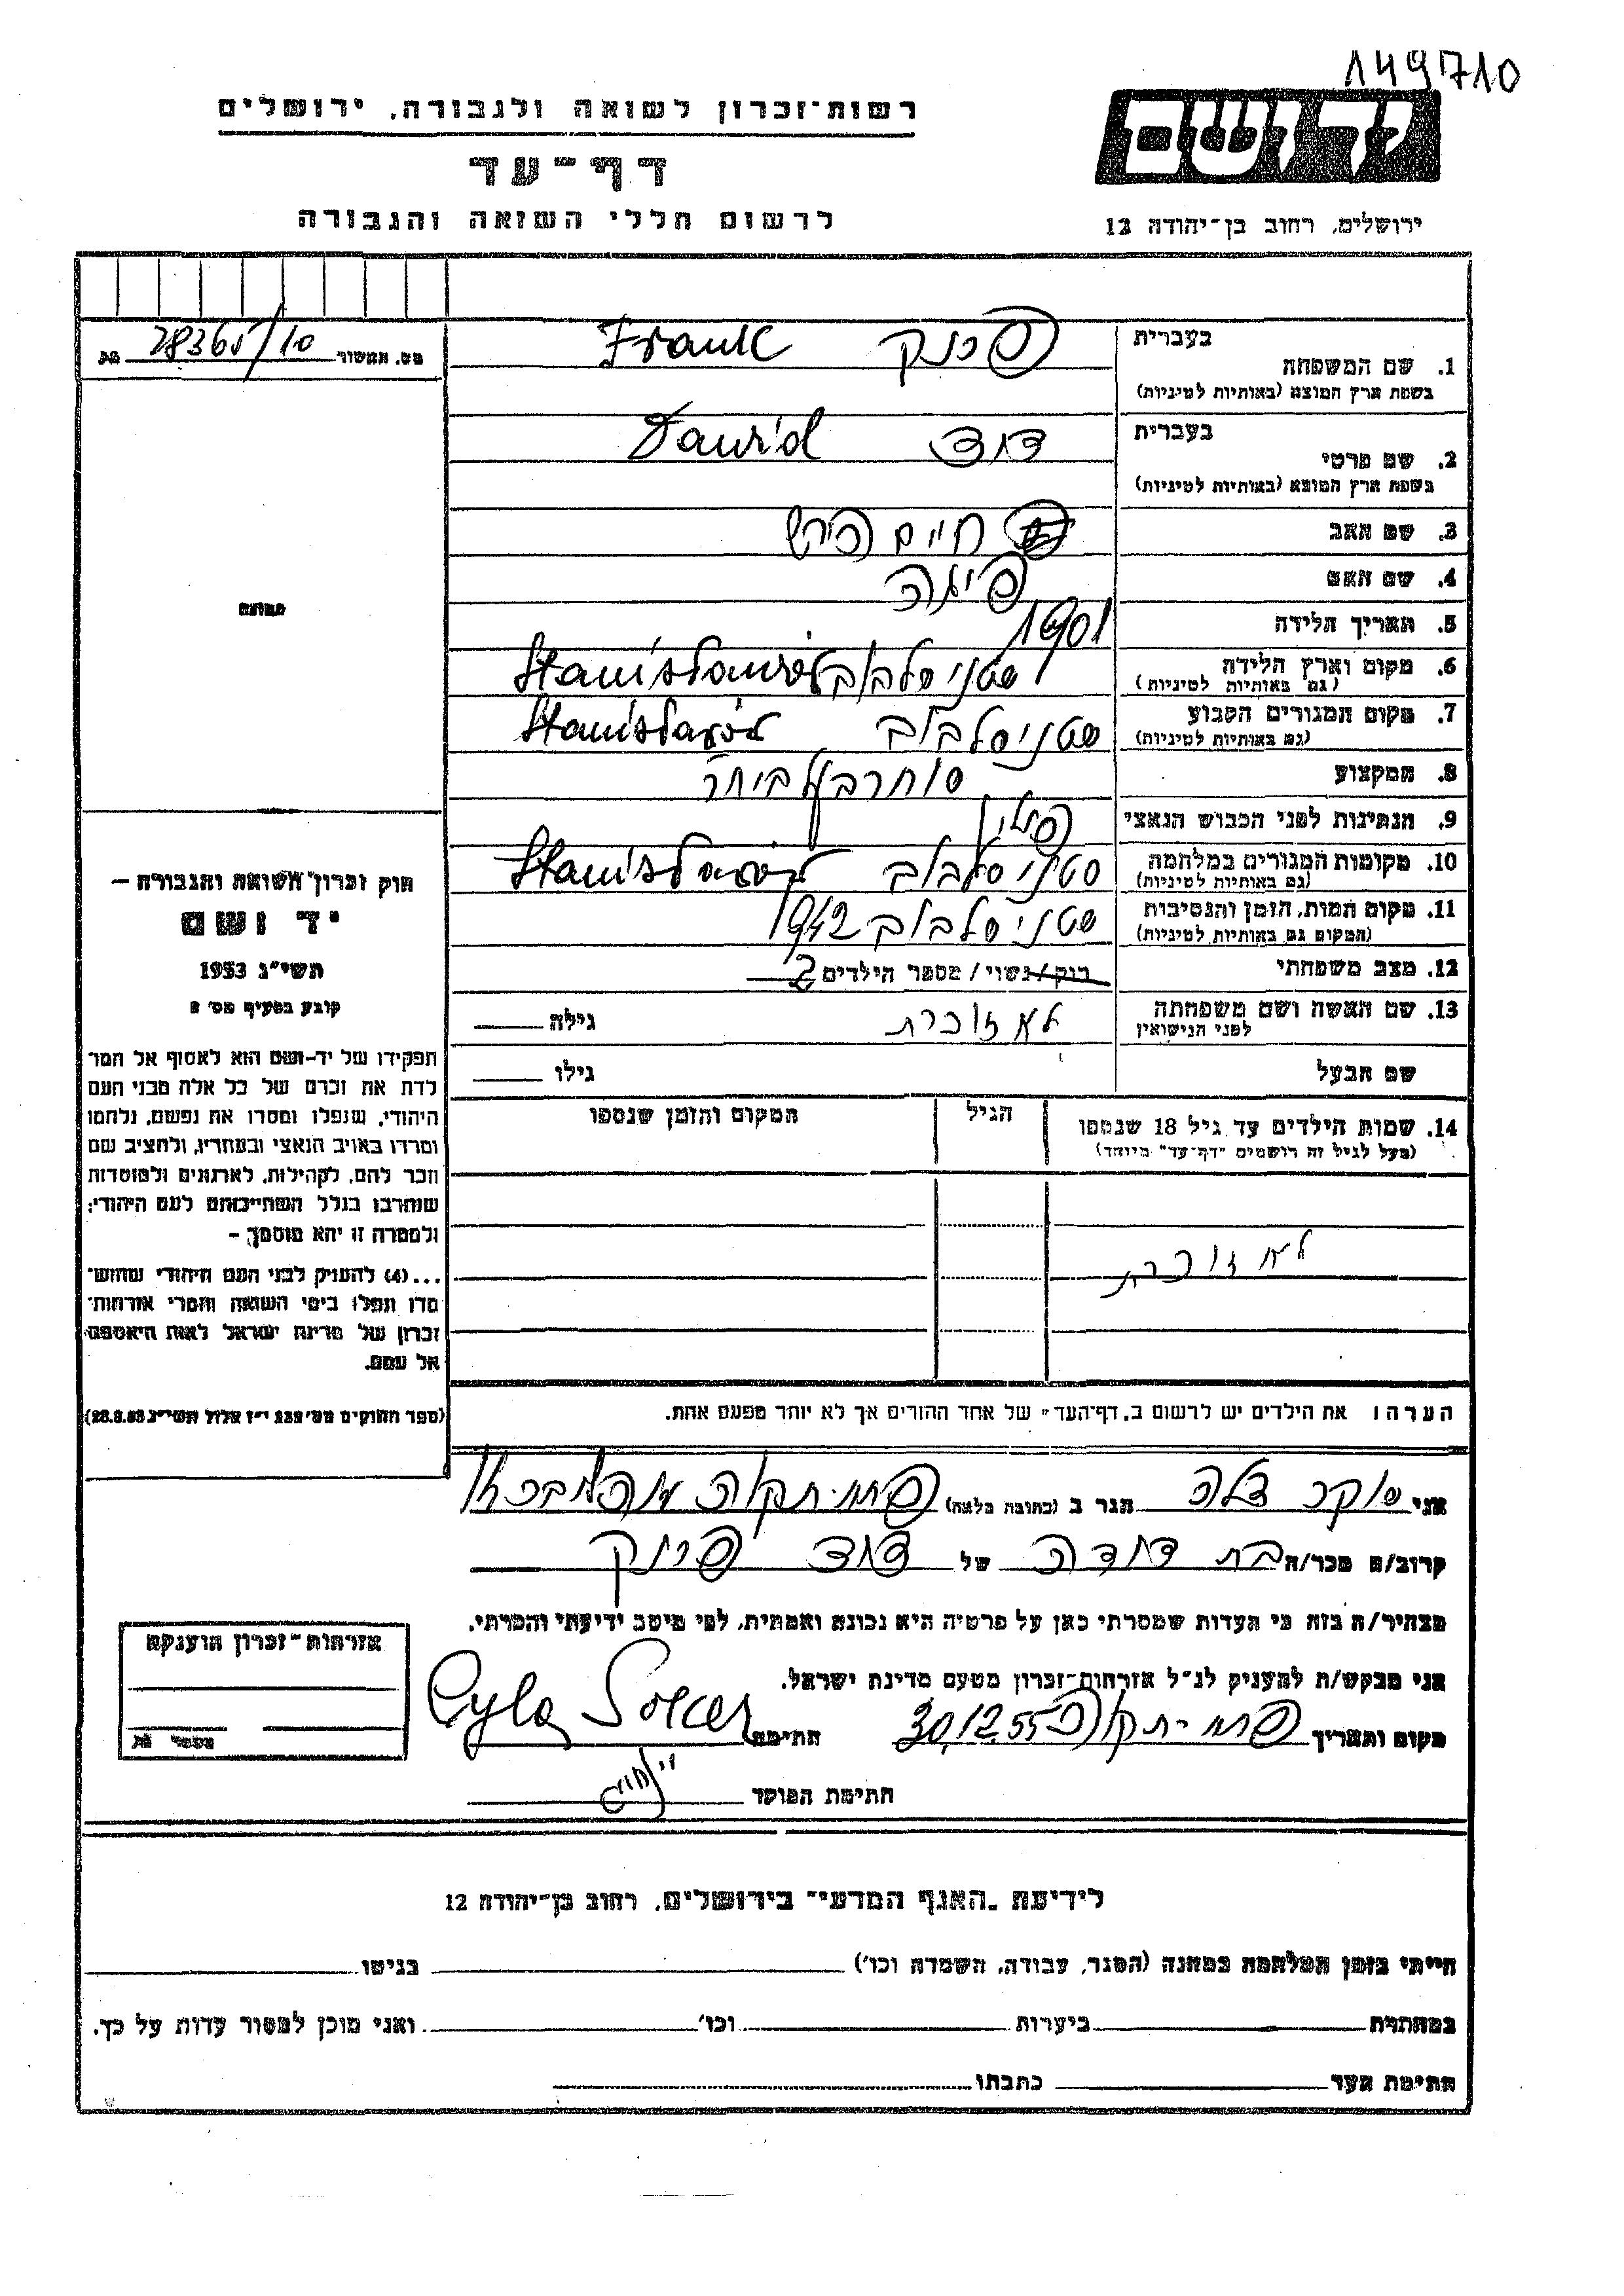 149710
רשות־זכרון לשואה ולגבורה, ירושלים
דף־עד
לרשום חללי השואה והגבורה
יד ושם
ירושלים, רחוב בן־יהודה 12
מס. תמשור 28365/10
תמונה
בעברית
1. שם המשפחה פרנק Frank
בשפת ארץ המוצא (באותיות לטיניות)
בעברית
2. שם פרטי דוד Dawid
בשפת ארץ המוצא (באותיות לטיניות)
3. שם האב חיים הירש
4. שם האם
5. תאריך הלידה 1901
6. מקום וארץ הלידה סטניסלבוב Stanisławów
(גם באותיות לטיניות)
7. מקום המגורים הקבוע סטניסלבוב Stanisławów
(גם באותיות לטיניות)
8. המקצוע סוחר
9. הנתינות לפני הכבוש הנאצי פולין
10. מקומות המגורים במלחמה סטניסלבוב Stanisławów
(גם באותיות לטיניות)
11. מקום המות, הזמן והנסיבות סטניסלבוב 1942
(המקום גם באותיות לטיניות)
12. מצב משפחתי רוק/נשוי/מספר הילדים 2
13. שם האשה ושם משפחתה לא זוכרת גילה
לפני הנישואין
שם הבעל גילו
14. שמות הילדים עד גיל 18 שנספו הגיל המקום והזמן שנספו
(מעל לגיל זה רושמים "דף־עד" מיוחד)
לא זוכרת
הערה: את הילדים יש לרשום ב„דף־העד" של אחד ההורים אך לא יותר מפעם אחת.
חוק זכרון השואה והגבורה –
יד ושם
תשי"ג 1953
קובע בסעיף מס' 2
תפקידו של יד-ושם הוא לאסוף אל המו־
לדת את זכרם של כל אלה מבני העם
היהודי, שנפלו ומסרו את נפשם, נלחמו
ומרדו באויב הנאצי ובעוזריו, ולהציב שם
וזכר להם, לקהילות, לארגונים ולמוסדות
שנחרבו בגלל השתייכותם לעם היהודי;
ולמטרה זו יהא מוסמך –
...(4) להעניק לבני העם היהודי שהוש־
מדו ונפלו בימי השואה והמרי אזרחות־
זכרון של מדינת ישראל לאות היאספם
אל עמם.
(ספר החוקים מס' 132 י"ז אלול תשי"ג 28.8.53)
אני סוקר צלה הגר ב (כתובת מלאה) פתח-תקוה
קרוב/ה מכר/ה בת דודה של דוד פרנק
מצהיר/ה בזה כי העדות שמסרתי כאן על פרטיה היא נכונה ואמתית, לפי מיטב ידיעתי והכרתי.
אני מבקש/ת להעניק לנ"ל אזרחות־זכרון מטעם מדינת ישראל.
מקום ותאריך פתח-תקוה 30.12.55 חתימה Cyla Soker
חתימת הפוקד
אזרחות־זכרון הוענקה
מספר
לידיעת „האגף המדעי" בירושלים, רחוב בן־יהודה 12
הייתי בזמן המלחמה במחנה (הסגר, עבודה, השמדה וכו') בגיטו
במחתרת ביערות וכו' ואני מוכן למסור עדות על כך.
חתימת העד כתבתו